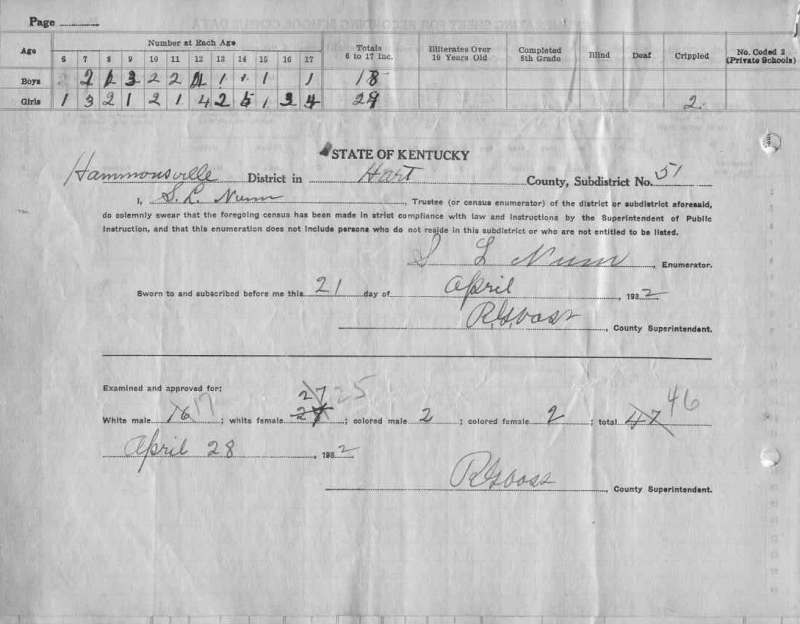 Page
Age Number at Each Age Totals 6 to 17 Inc. Illiterates Over 10 Years Old Completed 8th Grade Blind Deaf Crippled No. Coded 2 (Private Schools)
6 7 8 9 10 11 12 13 14 15 16 17
Boys 2 3 2 2 1 1 1 1 18
Girls 1 3 2 1 2 1 4 2 5 1 3 4 2
STATE OF KENTUCKY
Hammonsville District in Hart County, Subdistrict No. 51
I, S. L. Nunn, Trustee (or census enumerator) of the district or subdistrict aforesaid,
do solemnly swear that the foregoing census has been made in strict compliance with law and instructions by the Superintendent of Public
Instruction, and that this enumeration does not include persons who do not reside in this subdistrict or who are not entitled to be listed.
S L Nunn, Enumerator.
Sworn to and subscribed before me this 21 day of April, 1932
County Superintendent.
Examined and approved for:
27 25
White male 16 17; white female; colored male 2; colored female 2; total 47 46
April 28, 1932
County Superintendent.